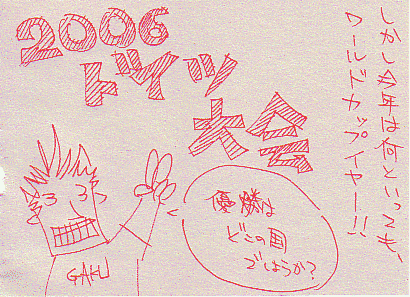 しかし今年は何といっても、
ワールドカップイヤー!!
2006
ドイツ
大会
優勝は
どこの国
でしょうか?
GAKU